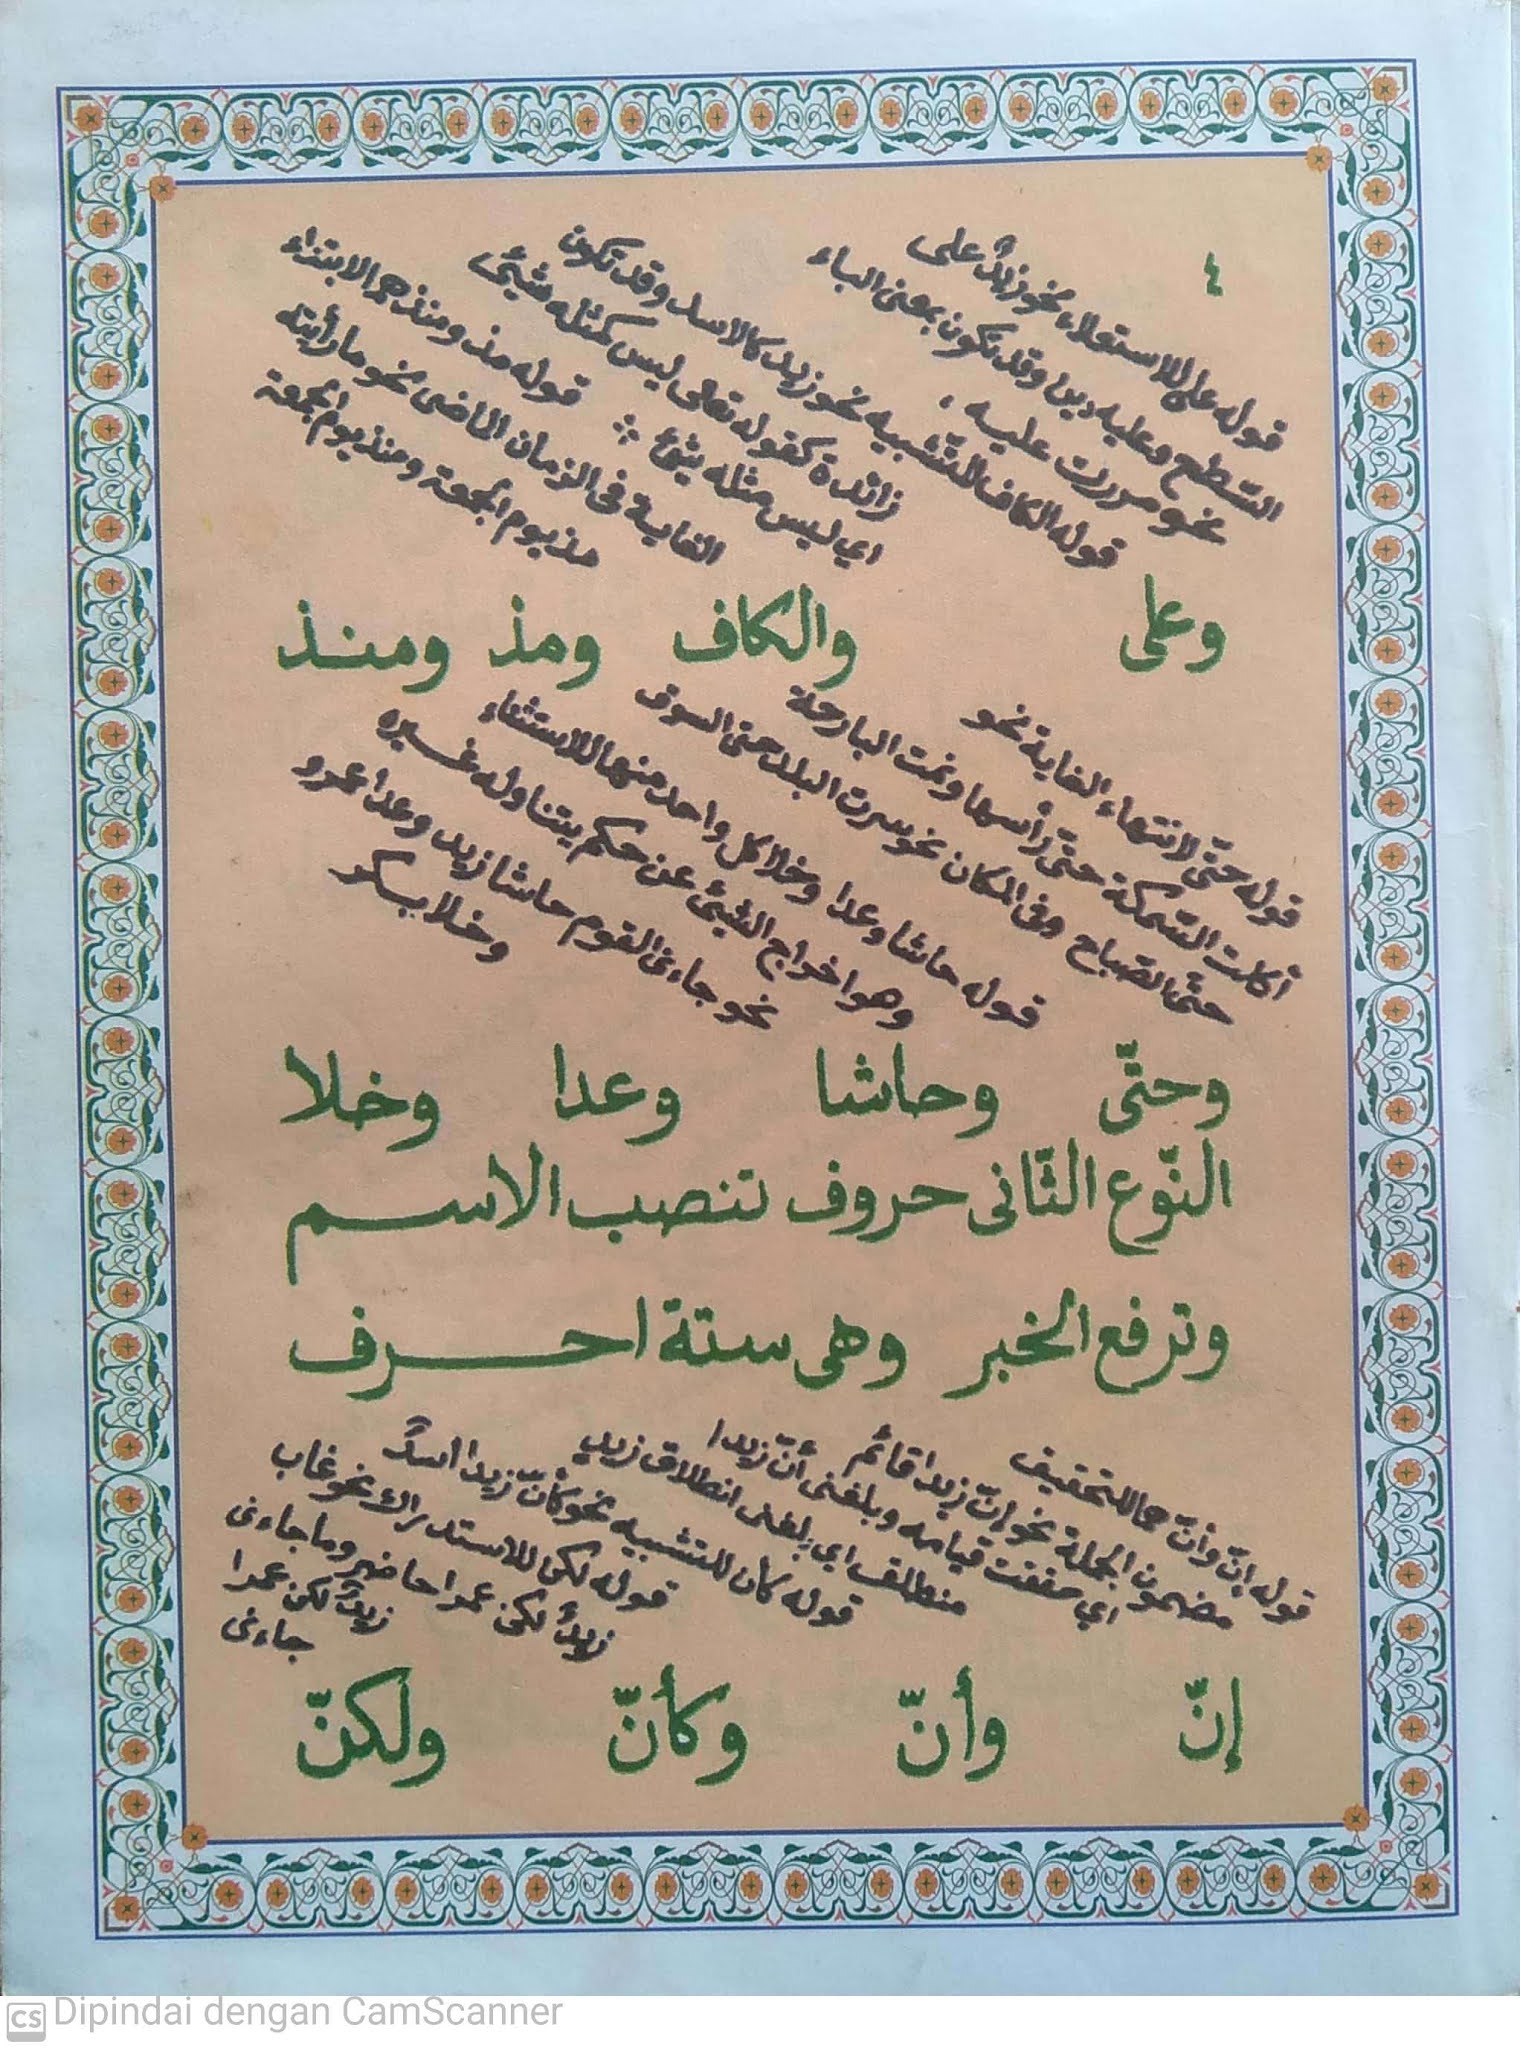 ٤
قوله على للاستعلاء نحو زيدٌ على
السّطح وعليه دين وقد تكون بمعنى الباء
نحو مررت عليه ،
قوله الكاف للتّشبيه نحو زيد كالاسد وقد تكون
زائدة كقوله تعالى ليس كمثله شيئى
اي ليس مثله شئ
قوله مذ ومنذ هما لابتداء
الغاية فى الزمان الماضى نحو ما رأيته
مذ يوم الجمعة ومنذ يوم الجمعة
وعلى والكاف ومذ ومنذ
قوله حتّى لانتهاء الغاية نحو
أكلت السّمكة حتّى رأسها ونمت البارحة
حتّى الصّباح وفى المكان نحو سرت البلد حتى السوق
قوله حاشا وعدا وخلا كل واحد منها للاستثناء
وهو اخراج الشيئ عن حكم يتناوله غسيره
نحو جاءنى القوم حاشا زيد وعدا عمرو
وخلا بسكو
وحتّى وحاشا وعدا وخلا
النّوع الثّانى حروف تنصب الاسم
وترفع الخبر وهى ستة احرف
قوله إنّ وأنّ هما للتحقيق
مضمون الجملة نحو إنّ زيدا قائم
اي حققت قيامه وبلغنى أنّ زيدا
منطلق اي بلغنى انطلاق زيد
قوله كأن للتشبيه نحو كأنّ زيدا أسدٌ
قوله لكن للاستدراك نحو غاب
زيدٌ لكن عمرا حاضر وما جاءنى
زيدٌ لكن عمرا
جاءنى
إنّ وأنّ وكأنّ ولكنّ
CS Dipindai dengan CamScanner